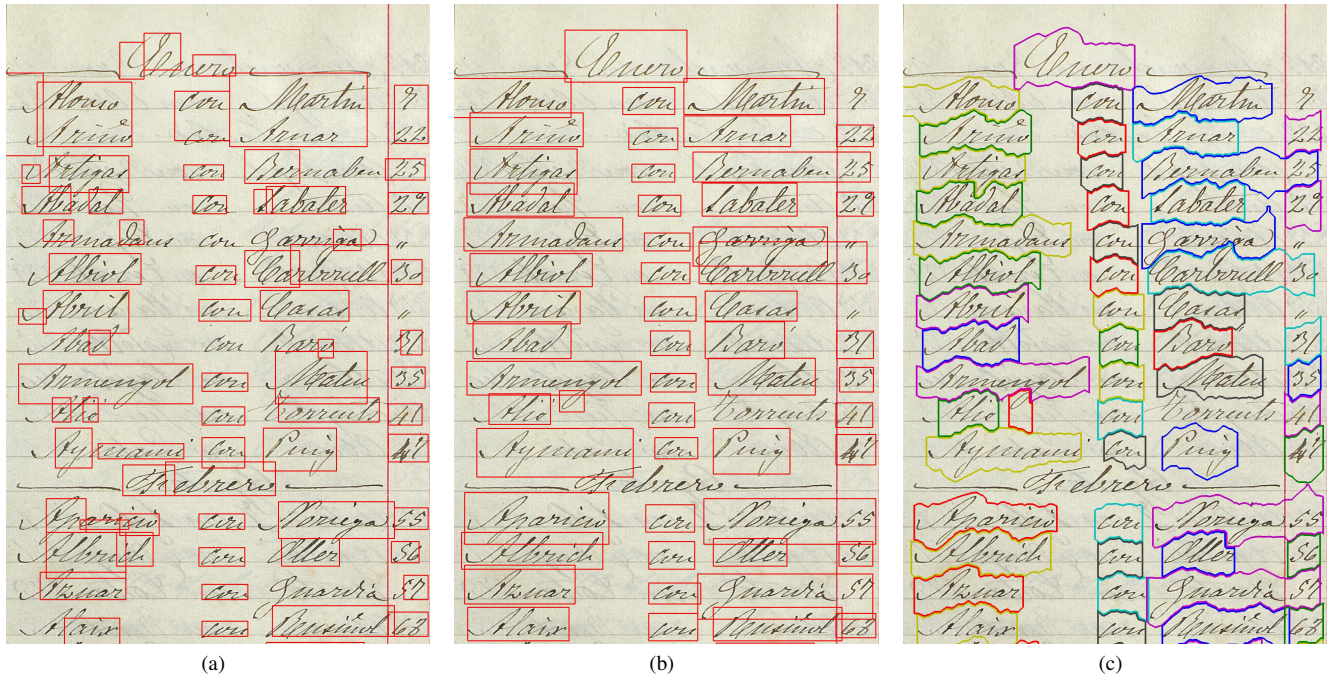 Enero
Alonso con Martin 9
Ariño con Aznar 22
Artigas con Bernabeu 25
Abadal con Sabater 29
Armadans con Garriga „
Albiol con Carbonell 30
Abril con Casas „
Abad con Baró 31
Armengol con Mateu 35
Alió con Torrents 41
Aymami con Puig
Febrero
Aparicio con Noriega 55
Albrich con Oller 56
Aznar con Guardia 57
Alaix con Rusiñol 68
(a)
Enero
Alonso con Martin 9
Ariño con Aznar 22
Artigas con Bernabeu 25
Abadal con Sabater 29
Armadans con Garriga „
Albiol con Carbonell 30
Abril con Casas „
Abad con Baró 31
Armengol con Mateu 35
Alió con Torrents 41
Aymami con Puig
Febrero
Aparicio con Noriega 55
Albrich con Oller 56
Aznar con Guardia 57
Alaix con Rusiñol 68
(b)
Enero
Alonso con Martin 9
Ariño con Aznar 22
Artigas con Bernabeu 25
Abadal con Sabater 29
Armadans con Garriga „
Albiol con Carbonell 30
Abril con Casas „
Abad con Baró 31
Armengol con Mateu 35
Alió con Torrents 41
Aymami con Puig
Febrero
Aparicio con Noriega 55
Albrich con Oller 56
Aznar con Guardia 57
Alaix con Rusiñol 68
(c)